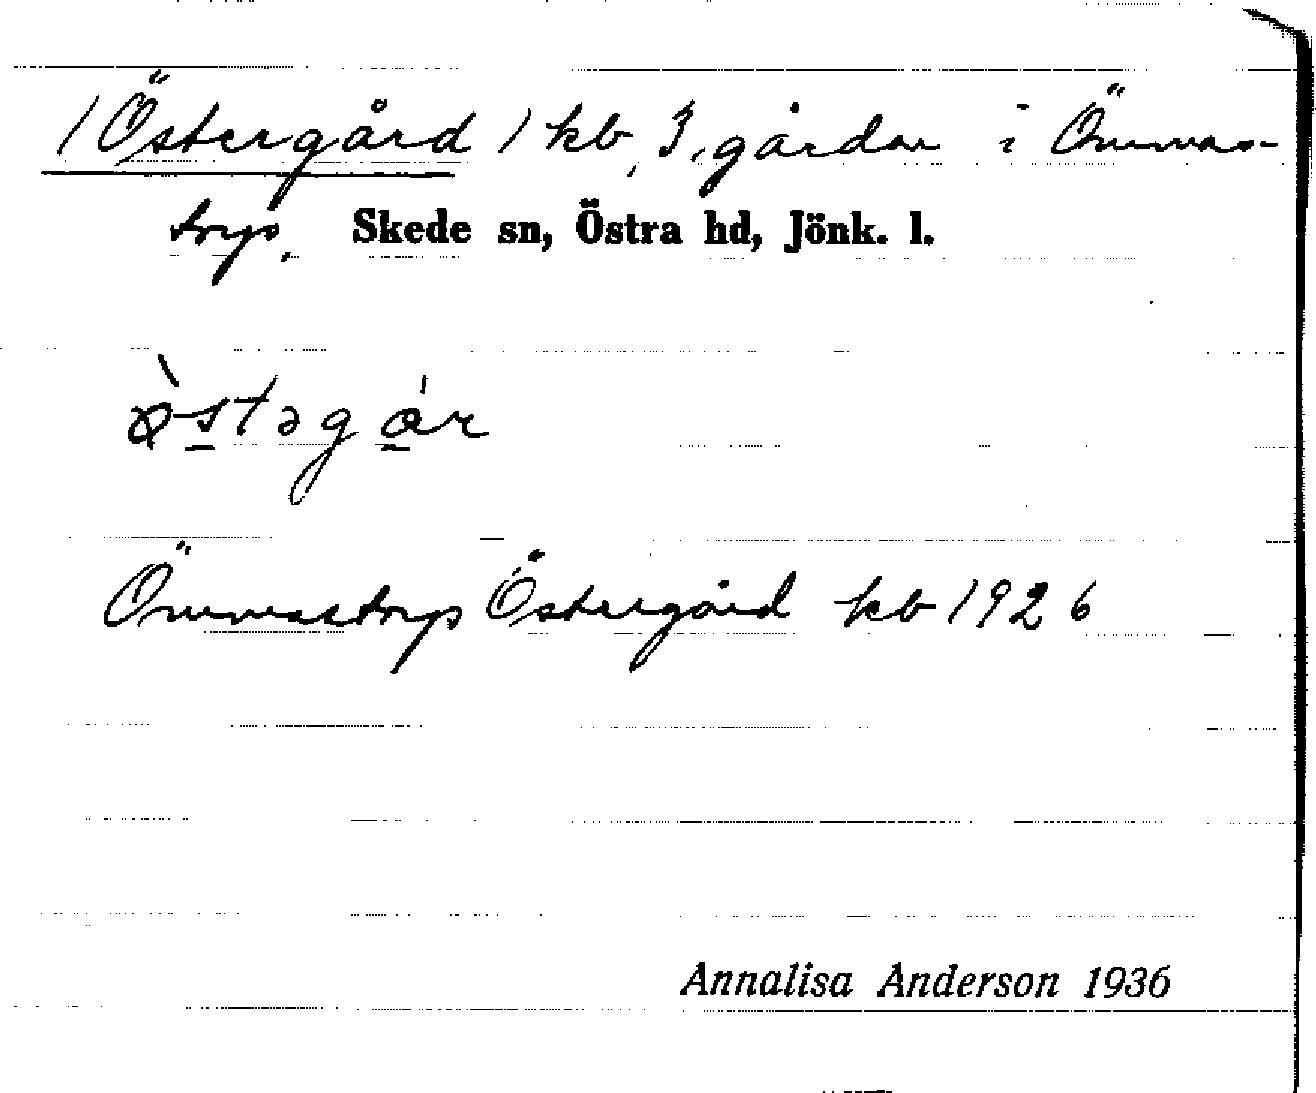 /Östergård/ kb, 3, gårdar i Ömmas-
torp. Skede sn, Östra hd, Jönk. l.
ø̀stəgár
Ömmastorp Östergård kb 1926
Annalisa Anderson 1936